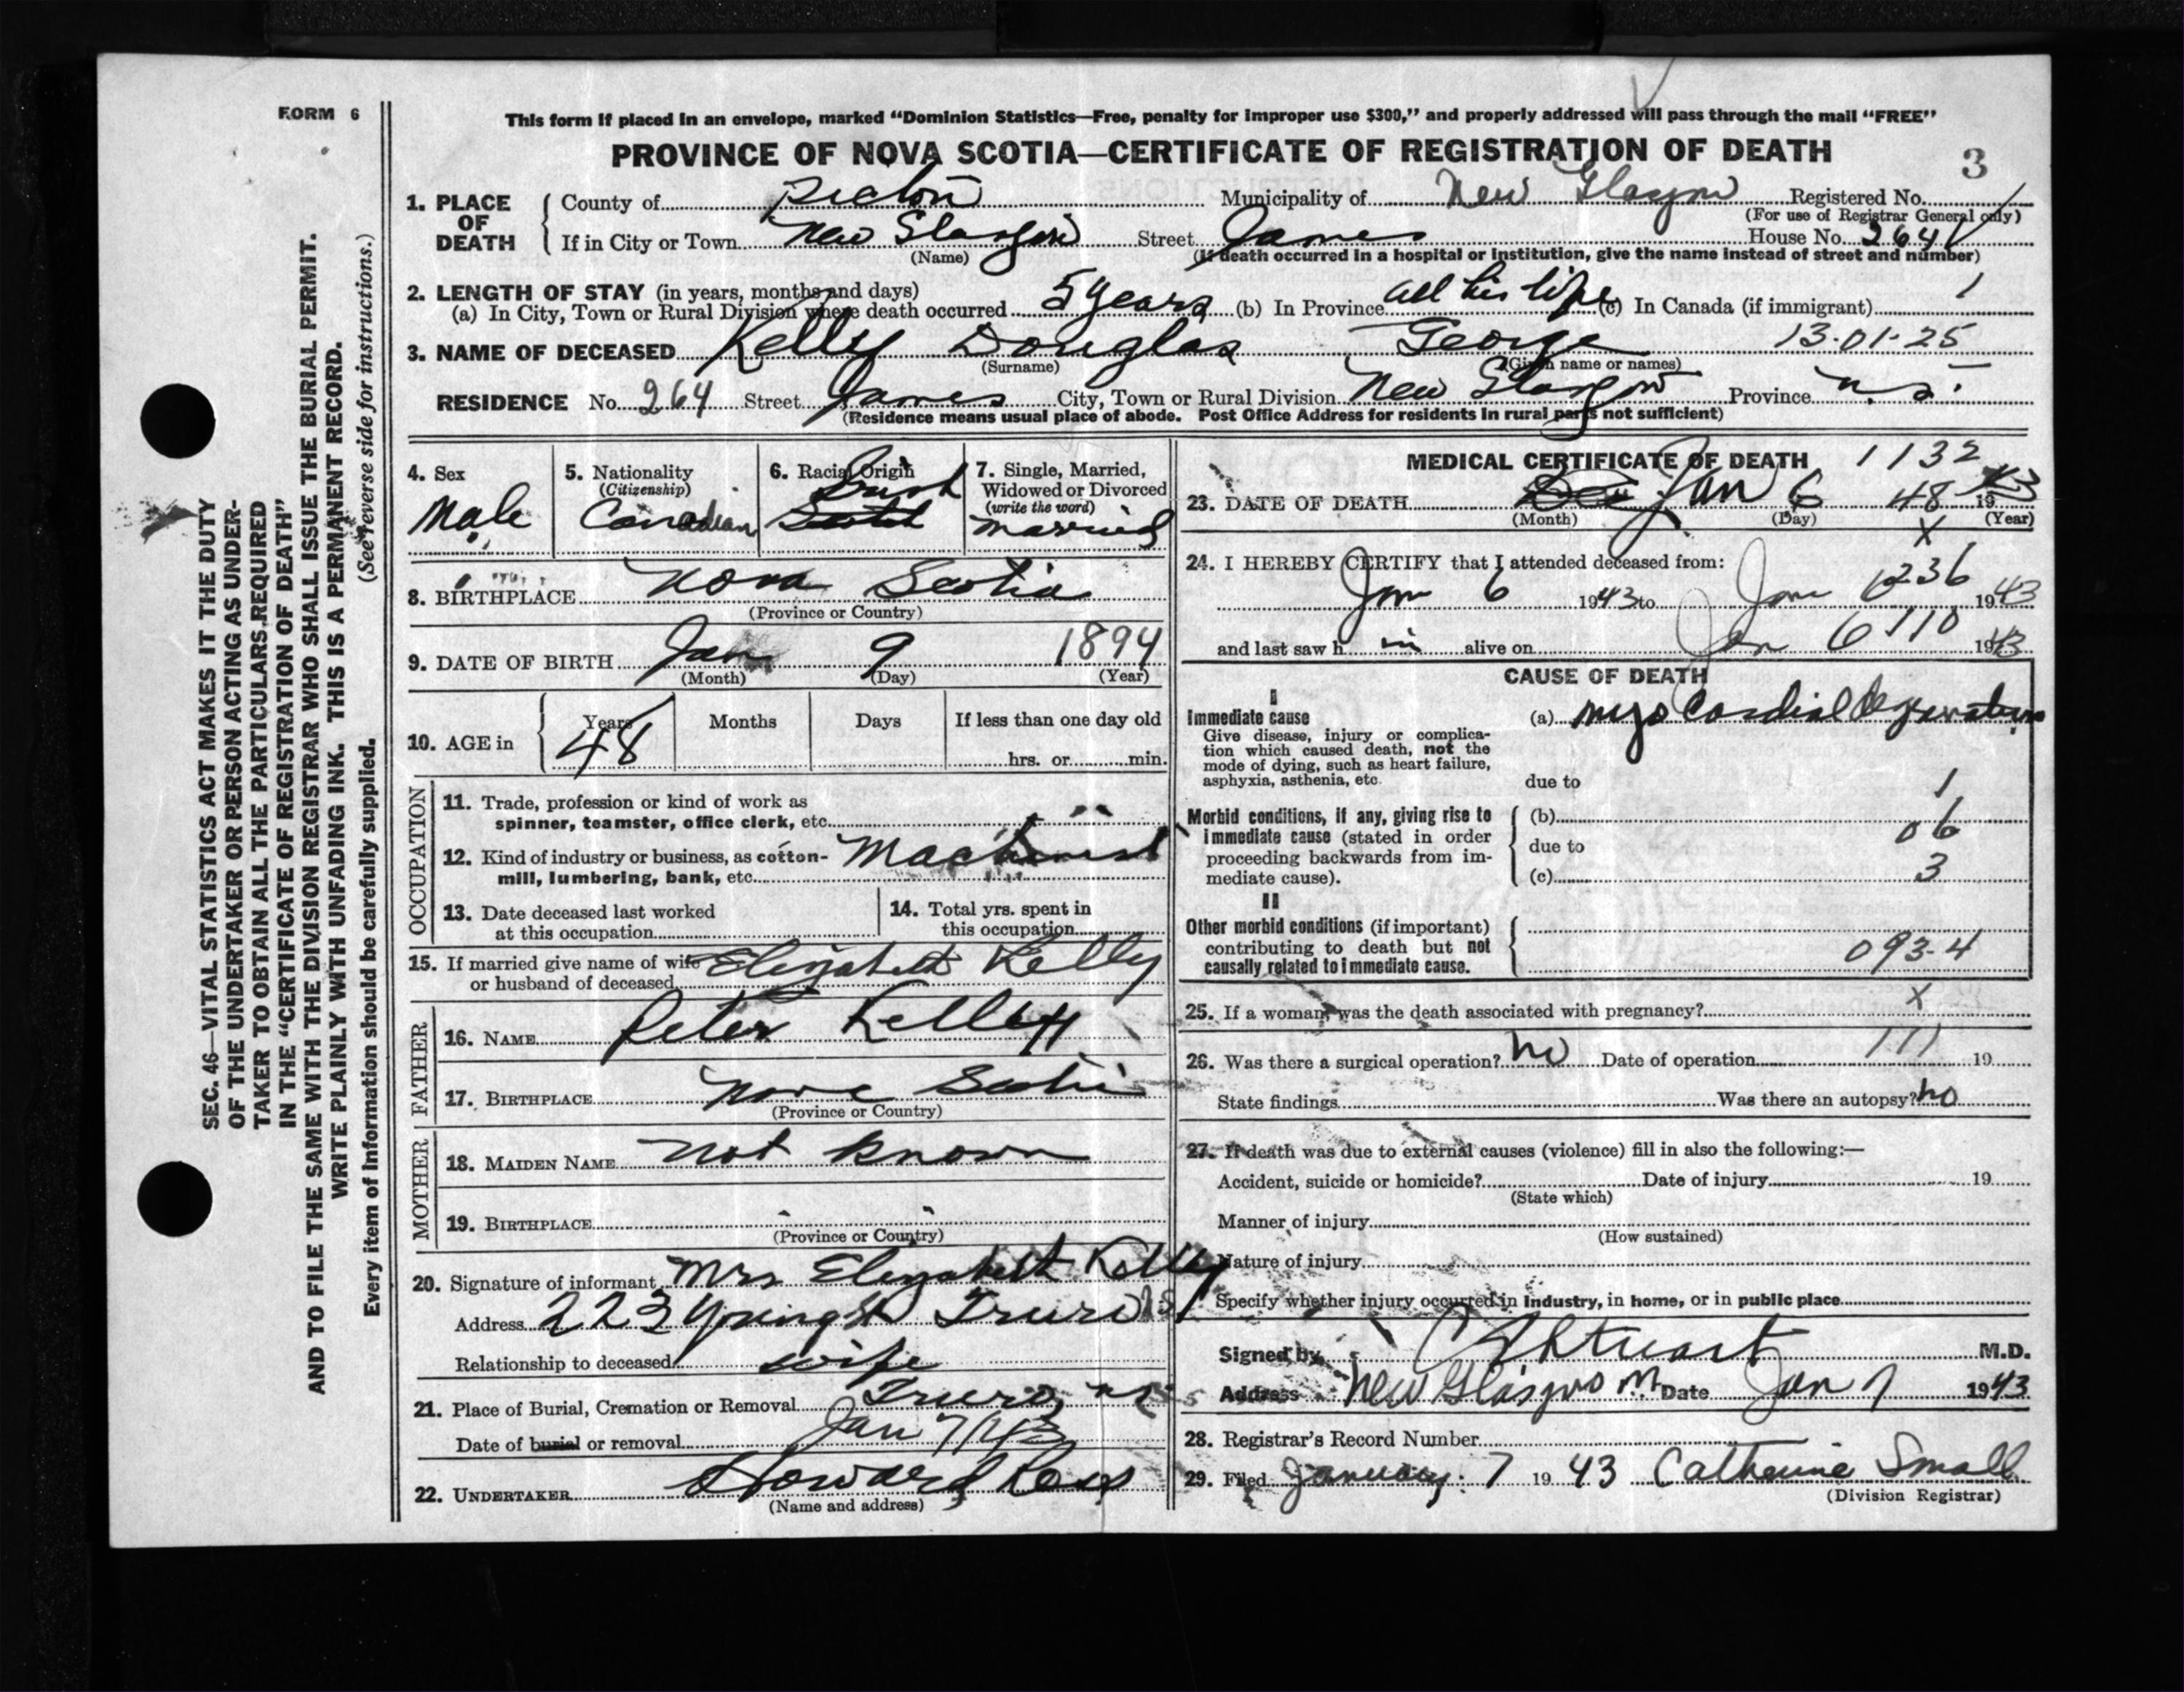 FORM 6
This form if placed in an envelope, marked "Dominion Statistics—Free, penalty for improper use $300," and properly addressed will pass through the mail "FREE"
PROVINCE OF NOVA SCOTIA—CERTIFICATE OF REGISTRATION OF DEATH
3
1. PLACE OF DEATH County of Pictou Municipality of New Glasgow Registered No.
(For use of Registrar General only)
If in City or Town New Glasgow Street James House No. 264
(Name) (If death occurred in a hospital or institution, give the name instead of street and number)
2. LENGTH OF STAY (in years, months and days)
(a) In City, Town or Rural Division where death occurred 5 years (b) In Province all his life (c) In Canada (if immigrant) 1
3. NAME OF DECEASED Kelly Douglas George 13-01-25
(Surname) (Given name or names)
RESIDENCE No. 264 Street James City, Town or Rural Division New Glasgow Province N.S.
(Residence means usual place of abode. Post Office Address for residents in rural parts not sufficient)
4. Sex
Male
5. Nationality
(Citizenship)
Canadian
6. Racial Origin
7. Single, Married, Widowed or Divorced
(write the word)
Married
8. BIRTHPLACE Nova Scotia
(Province or Country)
9. DATE OF BIRTH Jan 9 1894
(Month) (Day) (Year)
10. AGE in Years Months Days If less than one day old
48 hrs. or min.
OCCUPATION
11. Trade, profession or kind of work as
spinner, teamster, office clerk, etc.
12. Kind of industry or business, as cotton- Machinist
mill, lumbering, bank, etc.
13. Date deceased last worked
at this occupation
14. Total yrs. spent in
this occupation
15. If married give name of wife Elizabeth Kelly
or husband of deceased
FATHER
16. NAME Peter Kelly
17. BIRTHPLACE Nova Scotia
(Province or Country)
MOTHER
18. MAIDEN NAME Not Known
19. BIRTHPLACE
(Province or Country)
20. Signature of informant Mrs Elizabeth Kelly
Address 223 Young St Truro NS
Relationship to deceased wife
21. Place of Burial, Cremation or Removal Truro, N.S.
Date of burial or removal Jan 7/43
22. UNDERTAKER Howard Ross
(Name and address)
MEDICAL CERTIFICATE OF DEATH 1132
23. DATE OF DEATH Jan 6 48 19 43
(Month) (Day) (Year)
X
24. I HEREBY CERTIFY that I attended deceased from:
Jan 6 1943 to Jan 6 236 1943
and last saw h im alive on Jan 6 110 1943
CAUSE OF DEATH
I
Immediate cause (a) Myocardial degeneration
Give disease, injury or complica-
tion which caused death, not the
mode of dying, such as heart failure,
asphyxia, asthenia, etc. due to
1
Morbid conditions, if any, giving rise to (b)
immediate cause (stated in order 06
proceeding backwards from im- due to
mediate cause). (c) 3
II
Other morbid conditions (if important)
contributing to death but not
causally related to immediate cause. 093-4
25. If a woman, was the death associated with pregnancy? X
26. Was there a surgical operation? No Date of operation 111 19
State findings Was there an autopsy? No
27. If death was due to external causes (violence) fill in also the following:—
Accident, suicide or homicide? Date of injury 19
(State which)
Manner of injury
(How sustained)
Nature of injury
Specify whether injury occurred in industry, in home, or in public place
Signed by Stuart M.D.
Address New Glasgow Date Jan 7 1943
28. Registrar's Record Number
29. Filed January 7 1943 Catherine Small
(Division Registrar)
SEC. 46—VITAL STATISTICS ACT MAKES IT THE DUTY
OF THE UNDERTAKER OR PERSON ACTING AS UNDER-
TAKER TO OBTAIN ALL THE PARTICULARS REQUIRED
IN THE "CERTIFICATE OF REGISTRATION OF DEATH"
AND TO FILE THE SAME WITH THE DIVISION REGISTRAR WHO SHALL ISSUE THE BURIAL PERMIT.
WRITE PLAINLY WITH UNFADING INK. THIS IS A PERMANENT RECORD.
Every item of information should be carefully supplied. (See reverse side for instructions.)